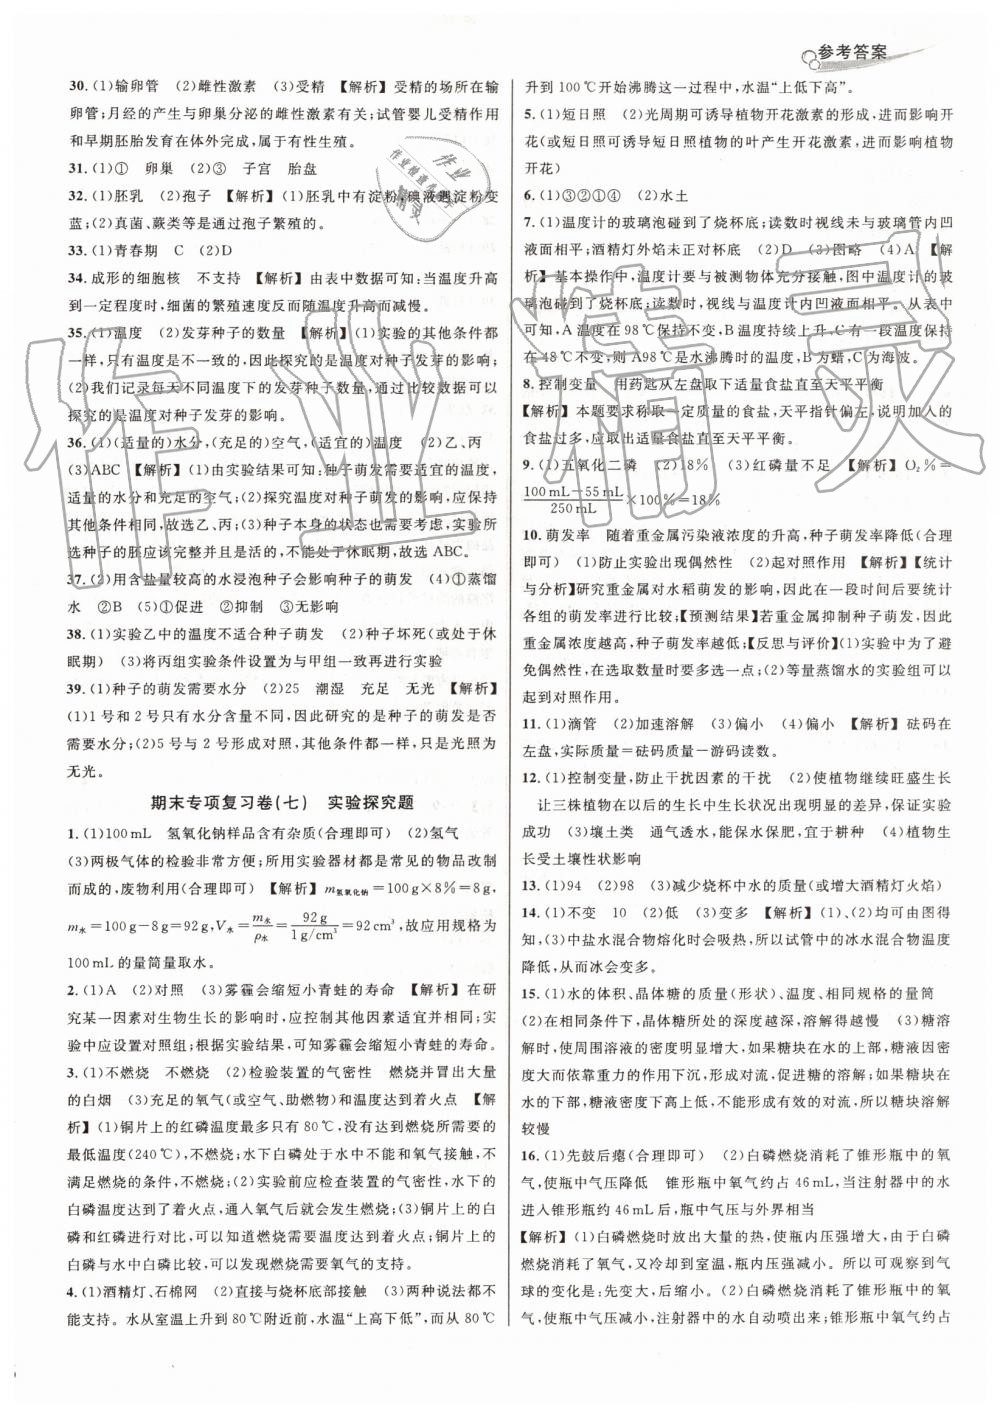 参考答案
30.(1)输卵管 (2)雌性激素 (3)受精 【解析】受精的场所在输
卵管;月经的产生与卵巢分泌的雌性激素有关;试管婴儿受精作用
和早期胚胎发育在体外完成,属于有性生殖。
31.(1)① 卵巢 (2)③ 子宫 胎盘
32.(1)胚乳 (2)孢子 【解析】(1)胚乳中有淀粉,碘液遇淀粉变
蓝;(2)真菌、蕨类等是通过孢子繁殖的。
33.(1)青春期 C (2)D
34.成形的细胞核 不支持 【解析】由表中数据可知,当温度升高
到一定程度时,细菌的繁殖速度反而随温度升高而减慢。
35.(1)温度 (2)发芽种子的数量 【解析】(1)实验的其他条件都
一样,只有温度是不一致的,因此探究的是温度对种子发芽的影响;
(2)我们记录每天不同温度下的发芽种子数量,通过比较数据可以
探究的是温度对种子发芽的影响。
36.(1)(适量的)水分,(充足的)空气,(适宜的)温度 (2)乙、丙
(3)ABC 【解析】(1)由实验结果可知:种子萌发需要适宜的温度,
适量的水分和充足的空气;(2)探究温度对种子萌发的影响,应保持
其他条件相同,故选乙、丙;(3)种子本身的状态也需要考虑,实验所
选种子的胚应该完整并且可能处于休眠期,故选ABC。
37.(2)用含盐量较高的水浸泡种子会影响种子的萌发 (4)①蒸馏
水 ②B (5)①促进 ②抑制 ③无影响
38.(1)实验乙中的温度不适合种子萌发 (2)种子坏死(或处于休
眠期) (3)将丙组实验条件设置为与甲组一致再进行实验
39.(1)种子的萌发需要水分 (2)25 潮湿 充足 无光 【解析】
(1)1号和2号只有水分含量不同,因此研究的是种子的萌发是否
需要水分;(2)5号与2号形成对照,其他条件都一样,只是光照为
无光。
期末专项复习卷(七) 实验探究题
1.(1)100mL 氢氧化钠样品含有杂质(合理即可) (2)氢气
(3)两极气体的检验非常方便;所用实验器材都是常见的物品改制
而成的,废物利用(合理即可) 【解析】m氢氧化钠=100g×8%=8g,
m水=100g-8g=92g,V水=m水/ρ水=92g/1g/cm³=92cm³,故应用规格为
100mL的量筒量取水。
2.(1)A (2)对照 (3)雾霾会缩短小青蛙的寿命 【解析】在研
究某一因素对生物生长的影响时,应控制其他因素适宜并相同;
实验中应设置对照组;根据实验结果可知,雾霾会缩短小青蛙的寿命。
3.(1)不燃烧 不燃烧 (2)检验装置的气密性 燃烧并冒出大量
的白烟 (3)充足的氧气(或空气、助燃物)和温度达到着火点 【解
析】(1)铜片上的红磷温度最多只有80℃,没有达到燃烧所需要的
最低温度(240℃),不燃烧;水下白磷处于水中不能和氧气接触,不
满足燃烧的条件,不燃烧。(2)实验前应检查装置的气密性,水下的
白磷温度达到了着火点,通入氧气后就会发生燃烧;(3)铜片上的白
磷和红磷进行对比,可以知道燃烧需要温度达到着火点;铜片上的
白磷与水中白磷比较,可以知道燃烧需要氧气的支持。
4.(1)酒精灯、石棉网 (2)直接与烧杯底部接触 (3)两种说法都不
能支持。水从室温上升到80℃附近前,水温“上高下低”,而从80℃
升到100℃开始沸腾这一过程中,水温“上低下高”。
5.(1)短日照 (2)光周期可诱导植物开花激素的形成,进而影响开
花(或短日照可诱导短日照植物的叶产生开花激素,进而影响植物
开花)
6.(1)③②①④ (2)水土
7.(1)温度计的玻璃泡碰到了烧杯底;读数时视线未与玻璃管内凹
液面相平;酒精灯外焰未正对杯底 (2)D (3)图略 (4)A 【解
析】基本操作中,温度计要与被测物体充分接触,图中温度计的玻
璃泡碰到了烧杯底;读数时视线要与温度计内凹液面相平。从表中
可知,A温度在98℃保持不变,B温度持续上升,C有一段温度保持
在48℃不变;则A98℃是水沸腾时的温度,B为蜡,C为海波。
8.控制变量 用药匙从左盘取下适量食盐直至天平平衡
【解析】本题要求称取一定质量的食盐,天平指针偏左,说明加入的
食盐过多,应取出适量食盐直至天平平衡。
9.(1)五氧化二磷 (2)18% (3)红磷量不足 【解析】O₂%=
100mL-55mL/250mL×100%=18%
10.萌发率 随着重金属污染液浓度的升高,种子萌发率降低(合理
即可) (1)防止实验出现偶然性 (2)起对照作用。【解析】【统计
与分析】研究重金属对水稻萌发的影响,因此在一段时间后要统计
各组的萌发率进行比较;【预测结果】若重金属抑制种子萌发,则
重金属浓度越高,种子萌发率越低;【反思与评价】(1)实验中为了避
免偶然性,在选取数量时要多选一点;(2)等量蒸馏水的实验组可以
起到对照作用。
11.(1)滴管 (2)加速溶解 (3)偏小 (4)偏小 【解析】砝码在
左盘,实际质量=砝码质量-游码读数。
12.(1)控制变量,防止干扰因素的干扰 (2)使植物继续旺盛生长
让三株植物在以后的生长中生长状况出现明显的差异,保证实验
成功 (3)壤土类 通气透水,能保水保肥,宜于耕种 (4)植物生
长受土壤性状影响
13.(1)94 (2)98 (3)减少烧杯中水的质量(或增大酒精灯火焰)
14.(1)不变 10 (2)低 (3)变多 【解析】(1)、(2)均可由图得
知,(3)中盐水混合物熔化时会吸热,所以试管中的冰水混合物温度
降低,从而冰会变多。
15.(1)水的体积、晶体糖的质量(形状)、温度、相同规格的量筒
(2)在相同条件下,晶体糖所处的深度越深,溶解得越慢 (3)糖溶
解时,使周围溶液的密度明显增大,如果糖块在水的上部,糖液密度
大而依靠重力的作用下沉,形成对流,促进糖的溶解;如果糖块在
水的下部,糖液密度大,不能形成有效的对流,所以糖块溶解
较慢
16.(1)先鼓后瘪(合理即可) (2)白磷燃烧消耗了锥形瓶中的氧
气,使瓶中气压降低 锥形瓶中氧气约占46mL,当注射器中的水
进入锥形瓶约46mL后,瓶中气压与外界相当
【解析】(1)白磷燃烧时放出大量的热,使瓶内气压强增大,由于白磷
燃烧消耗了氧气,又冷却到室温,瓶内压强减小。所以可观察到气
球的变化是:先变大,后缩小。(2)白磷燃烧消耗了锥形瓶中的氧
气,使瓶中气压减小,注射器中的水自动喷出来;锥形瓶中氧气约占
作业精灵